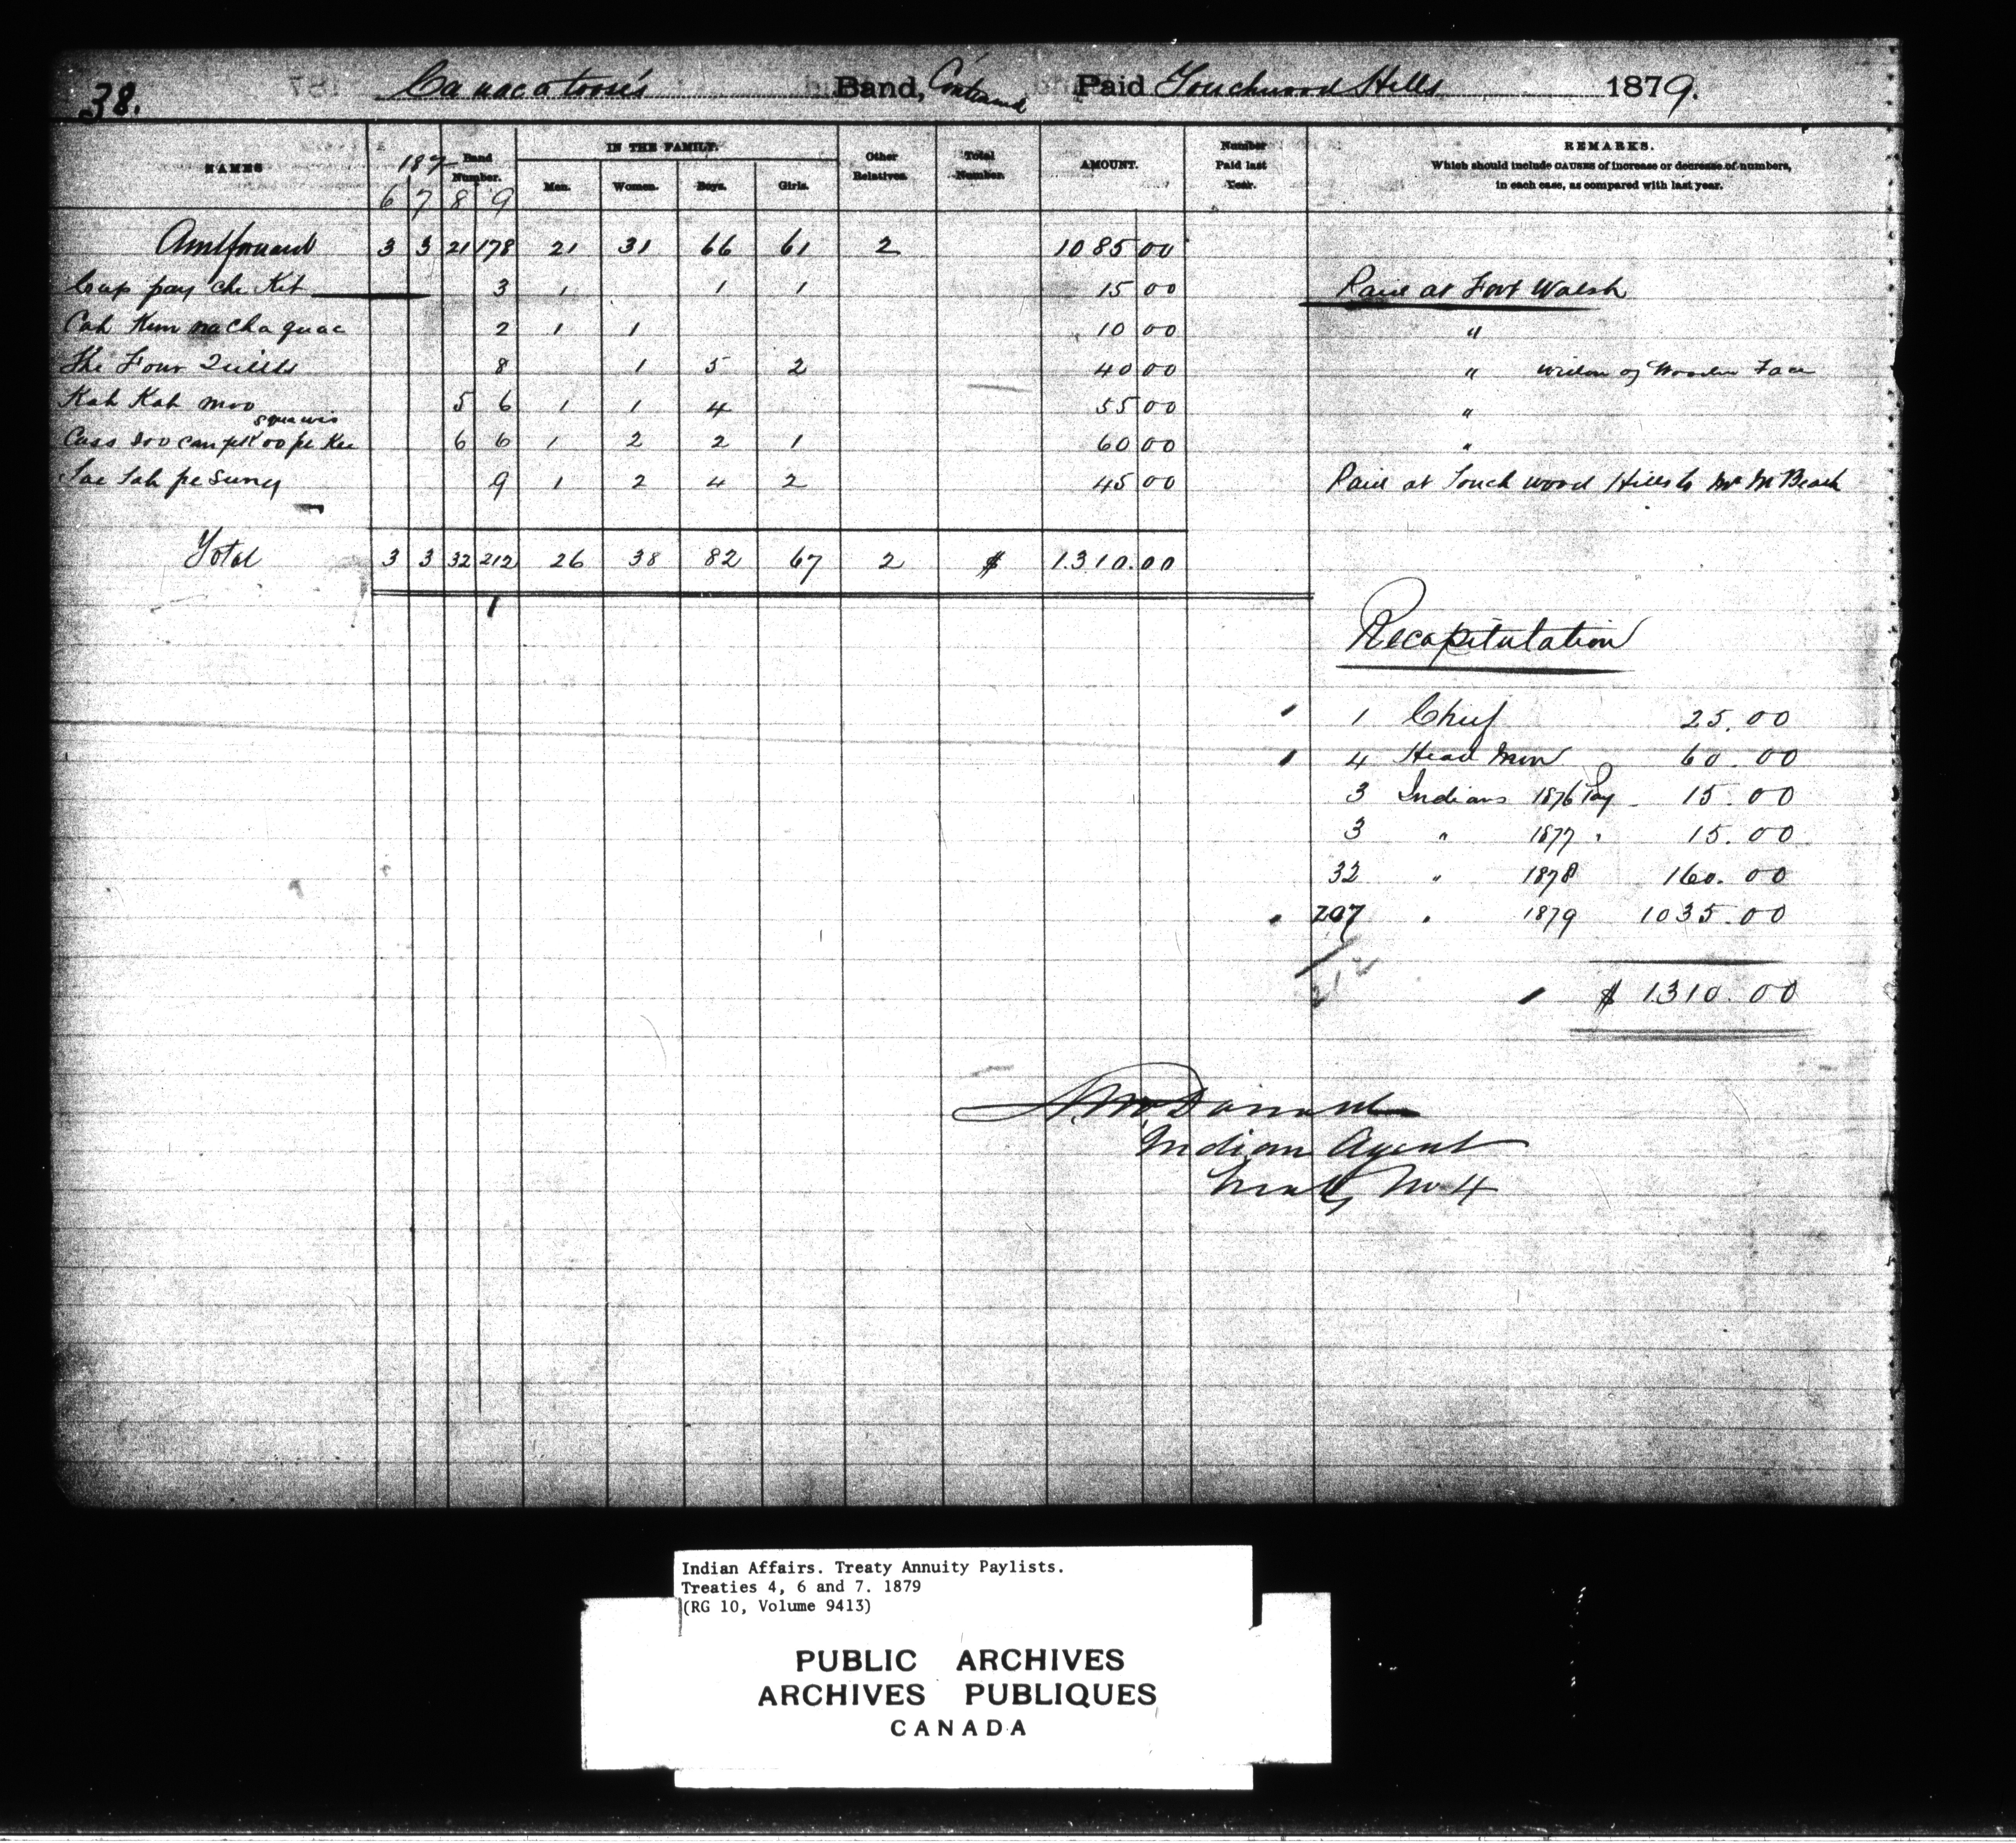 38. Ca nac a toose's Band, Continued Paid Touchwood Hills 1879.
NAMES 187 Band Number. IN THE FAMILY. Other Relatives Total Number. AMOUNT. Number Paid last Year. REMARKS.
Which should include CAUSES of increase or decrease of numbers,
in each case, as compared with last year.
6 7 8 9 Men. Women. Boys. Girls.
Amt forward 3 3 21 178 21 31 66 61 2 1085 00
pay che Kit 3 1 1 1 15 00 Paid at Fort Walsh
Cah Kim na cha quae 2 1 1 10 00 "
The Four Quills 8 1 5 2 40 00 " widow of Wooden Face
Kah Kah moo 5 6 1 1 4 55 00 "
6 6 1 2 2 1 60 00 "
9 1 2 4 2 45 00 Paid at Touch wood Hills to Mr McBeath
Total 3 3 32 212 26 38 82 67 2 $ 1.310.00
Recapitulation
1 Chief 25.00
4 Head Men 60.00
3 Indians 1876 Pay 15.00
3 " 1877 " 15.00
32 " 1878 160.00
207 " 1879 1035.00
212
$ 1310.00
A. McDonald
Indian Agent
Treaty No 4
Indian Affairs. Treaty Annuity Paylists.
Treaties 4, 6 and 7. 1879
(RG 10, Volume 9413)
PUBLIC ARCHIVES
ARCHIVES PUBLIQUES
CANADA